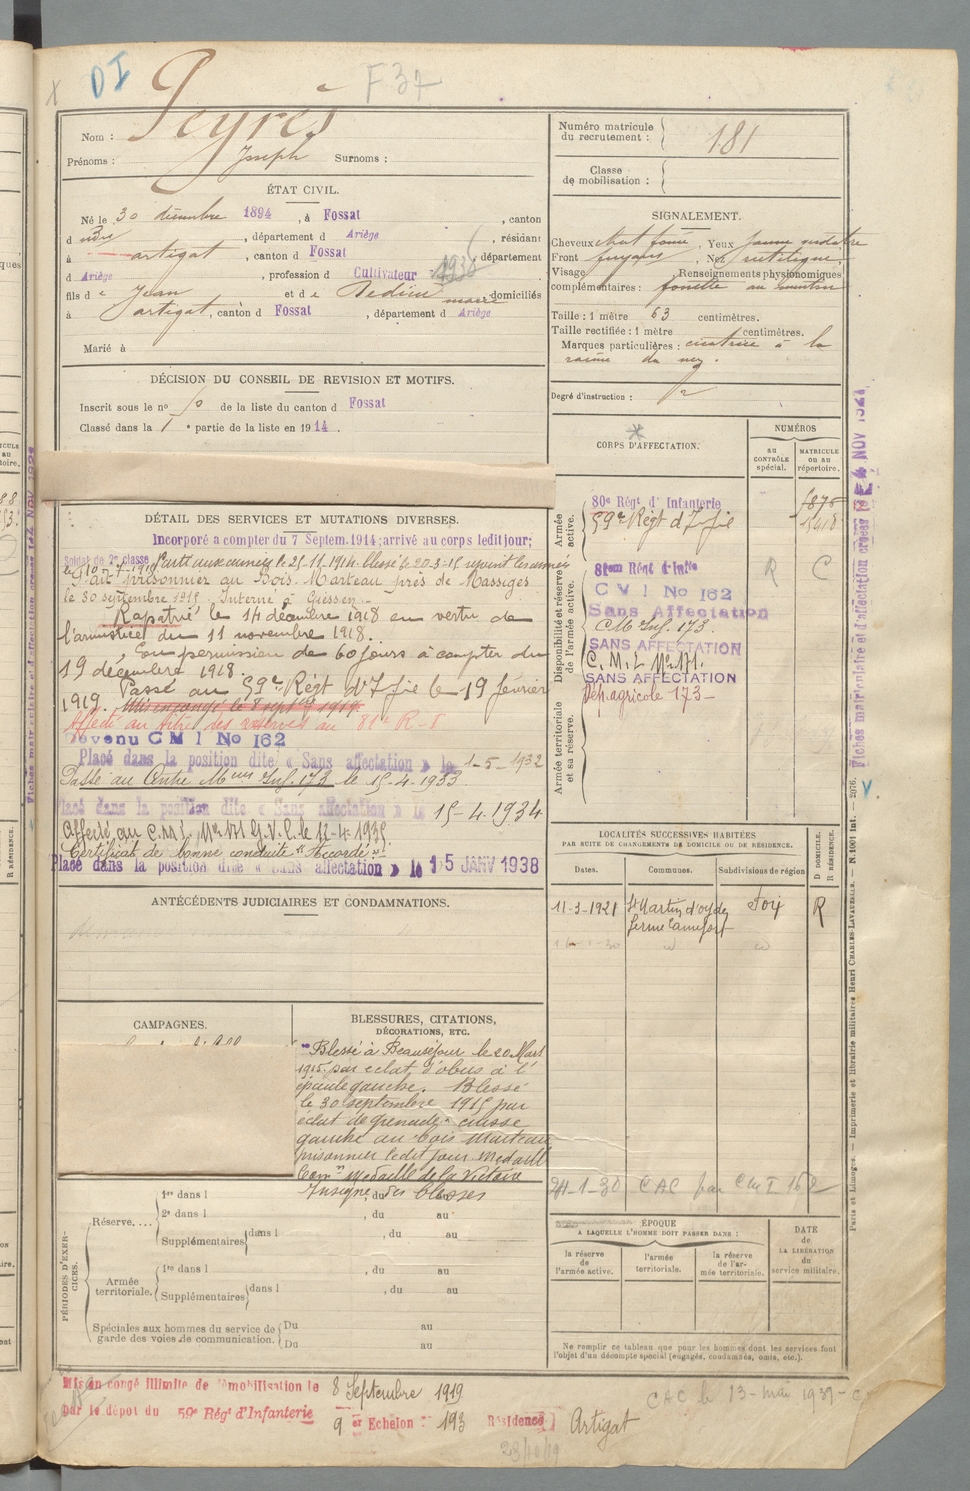 DI
F 37
Nom : Peyrès
Prénoms : Joseph Surnoms :
ÉTAT CIVIL.
Né le 30 décembre 1894, à Fossat, canton
d udit, département d Ariège, résidant
à artigat, canton d Fossat, département
d Ariège, profession d Cultivateur
fils de Jean et de domiciliés
à artigat, canton d Fossat, département d Ariège
Marié à
DÉCISION DU CONSEIL DE REVISION ET MOTIFS.
Inscrit sous le no de la liste du canton d Fossat
Classé dans la 1e partie de la liste en 1914.
DÉTAIL DES SERVICES ET MUTATIONS DIVERSES.
Incorporé a compter du 7 Septem. 1914; arrivé au corps ledit jour;
Soldat de 2e classe Parti aux armées le 25.11.1914 blessé le 20.3.15 revient les armées
le 10-7-1915 fait prisonnier au Bois Marteau près de Massiges
le 30 septembre 1915. Interné à Giessen.
Rapatrié le 14 décembre 1918 en vertu de
l'armistice du 11 novembre 1918.
En permission de 60 jours à compter du
19 décembre 1918.
Passé au 59e Régt d'Ifie le 19 février
1919. Mis en congé le 8 septbre 1919.
Affecté au titre des réserves au 81e R-I
Devenu C M I No 162
Placé dans la position dite « Sans affectation » le 1-5-1932
Passé au Centre Mteur Inf. 173 le 15-4-1933
Placé dans la position dite « Sans affectation » le 15-4-1934
Affecté au C.M.I. No 171 le 11-4-1935
Certificat de bonne conduite "Accordé"
Placé dans la position dite « Sans affectation » le 15 JANV 1938
ANTÉCÉDENTS JUDICIAIRES ET CONDAMNATIONS.
CAMPAGNES.
BLESSURES, CITATIONS,
DÉCORATIONS, ETC.
Blessé à Beauséjour le 20 Mars
1915 par eclat d'obus à l'
épaule gauche. Blessé
le 30 septembre 1915 par
eclat de grenade cuisse
gauche au bois Marteau
prisonnier ledit jour. Medaille
Comve Medaille de la Victoire
Insigne des blessés
PÉRIODES D'EXERCICES.
Réserve....
1re dans l , du au
2e dans l , du au
Supplémentaires dans l , du au
Armée territoriale.
1re dans l , du au
Supplémentaires dans l , du au
Spéciales aux hommes du service de
garde des voies de communication.
Du au
Du au
Mis en congé illimité de démobilisation le 8 Septembre 1919
par le dépot du 59e Régt d'Infanterie
9 er Echelon : No 193 Résidence Artigat
23/10/19
Numéro matricule
du recrutement : 181
Classe
de mobilisation :
SIGNALEMENT.
Cheveux chat foncé, Yeux jaune verdâtre
Front fuyant, Nez rectiligne,
Visage , Renseignements physionomiques
complémentaires : fossette au menton
Taille : 1 mètre 63 centimètres.
Taille rectifiée : 1 mètre centimètres.
Marques particulières : cicatrice à la
racine du nez.
Degré d'instruction : 2
CORPS D'AFFECTATION.
NUMÉROS
au
CONTRÔLE
spécial.
MATRICULE
ou au
répertoire.
Armée
active.
80e Régt d'Infanterie
59e Régt d'Ifie
Disponibilité et réserve
de l'armée active.
81eme Régt d'Inftie R C
C V I No 162
Sans Affectation
C M Inf. 173.
SANS AFFECTATION
C.M.I. No 171.
SANS AFFECTATION
Dép. agricole 173-
Armée territoriale
et sa réserve.
LOCALITÉS SUCCESSIVES HABITÉES
PAR SUITE DE CHANGEMENTS DE DOMICILE OU DE RÉSIDENCE.
Dates. Communes. Subdivisions de région
D DOMICILE.
R RÉSIDENCE.
11-3-1921 St Martin d'oydes Foix R
ferme
24-1-30 CAC par CMI 162
ÉPOQUE
A LAQUELLE L'HOMME DOIT PASSER DANS :
la réserve
de
l'armée active.
l'armée
territoriale.
la réserve
de l'ar-
mée territoriale.
DATE
de
LA LIBÉRATION
du
service militaire.
Ne remplir ce tableau que pour les hommes dont les services font
l'objet d'un décompte spécial (engagés, condamnés, omis, etc.).
CAC le 13-mai 1937-
Fiches matriculaire et d'affectation créées le 4 NOV 1921
Paris et Limoges. — Imprimerie et librairie militaires Henri CHARLES-LAVAUZELLE. — N. 1001 int. — 2076.